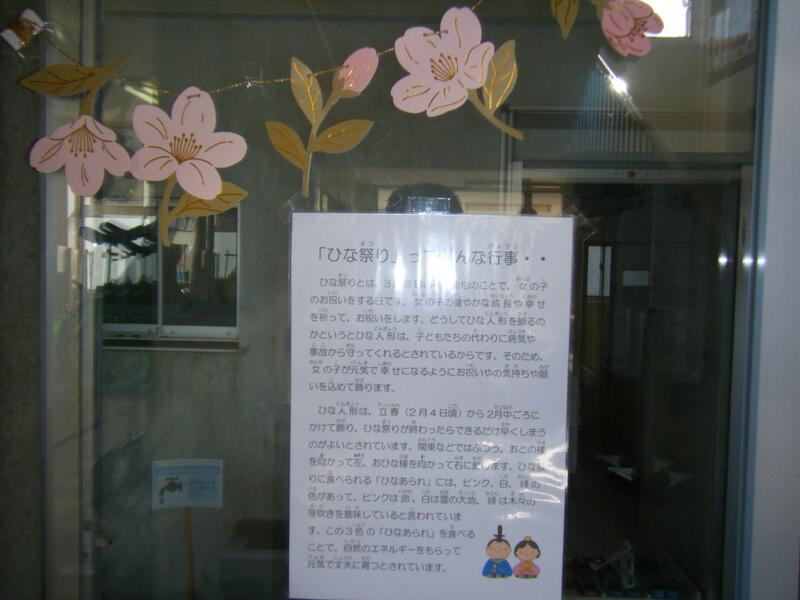 「ひな祭り」ってどんな行事・・
ひな祭りとは、3月3日の 節句のことで、女の子
のお祝いをする日です。女の子の健やかな成長や幸せ
を祈って、お祝いをします。どうしてひな人形を飾るの
かというとひな人形は、子どもたちの代わりに病気や
事故から守ってくれるとされているからです。そのため、
女の子が元気で幸せになるようにお祝いや気持ちや願
いを込めて飾ります。
ひな人形は、立春(2月4日頃)から2月中ごろに
かけて飾り、ひな祭りが終わったらできるだけ早くしまう
のがよいとされています。関東などではふつう、おとの様
を向かって左、おひな様を向かって右に飾ります。ひな祭
りに食べられる「ひなあられ」には、ピンク、白、緑の
色があって、ピンクは命、白は雪の大地、緑は木々の
芽吹きを意味していると言われていま
す。この3色の「ひなあられ」を食べる
ことで、自然のエネルギーをもらって
元気で丈夫に育つとされています。